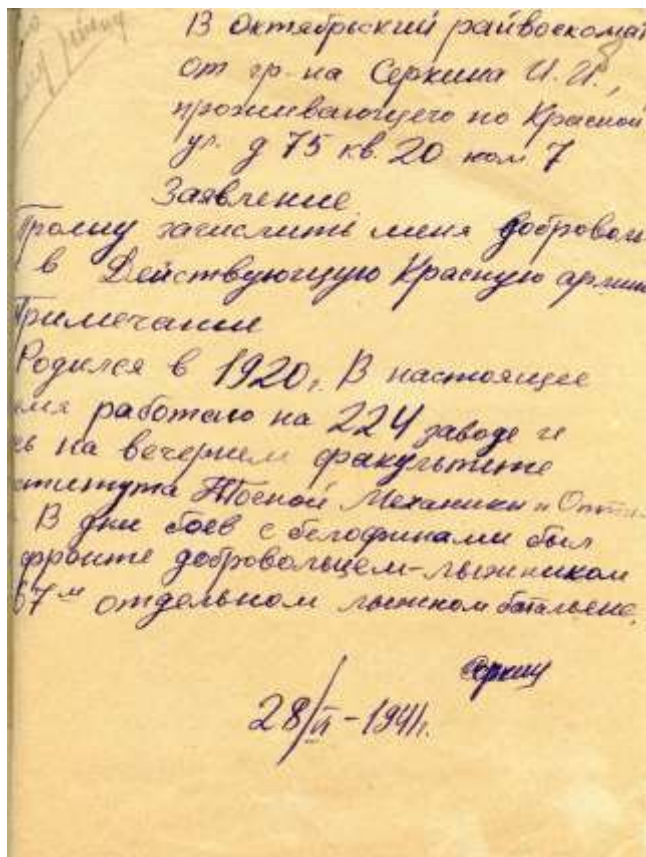 В Октябрьский райвоенкомат
от гр-на Серкина И.И.,
проживающего по Красной
ул. д 75 кв. 20 ком 7
Заявление
Прошу зачислить меня доброволь
в Действующую Красную армию
Примечание
Родился в 1920г. В настоящее
мя работаю на 224 заводе и
сь на вечернем факультете
ститута Точной Механики и Опти
В дни боев с белофинами был
фронте добровольцем-лыжником
67м отдельном лыжном батальене.
Серкин
28/VI-1941г.